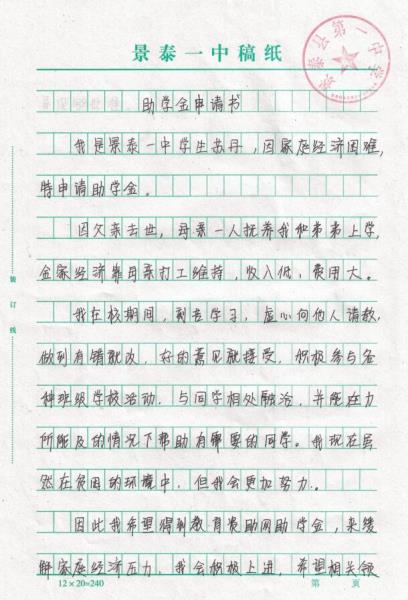 景泰县第一中学
景泰一中稿纸
助学金申请书
我是景泰一中学生苗丹，因家庭经济困难，
特申请助学金。
因父亲去世，母亲一人抚养我和弟弟上学，
全家经济靠母亲打工维持，收入低，费用大。
我在校期间，刻苦学习，虚心向他人请教，
做到有错就改，好的意见就接受，积极参与各
种班级学校活动，与同学相处融洽，并能在力
所能及的情况下帮助有需要的同学。我现在虽
然在贫困的环境中，但我会更加努力。
因此我希望得到教育资助网助学金，来缓
解家庭经济压力，我会积极上进，希望相关领
装订线
12×20=240
第 页